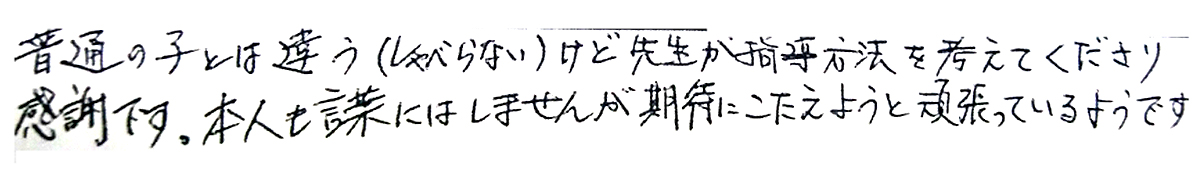 普通の子とは違う(しゃべらない)けど先生が指導方法を考えてくださり
感謝です。本人も言葉にはしませんが期待にこたえようと頑張っているようです